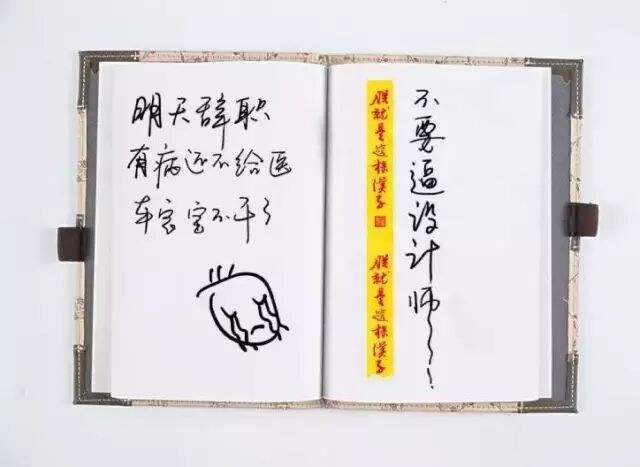 明天辞职
有病还不给医
本宝宝不干了
朕就是這樣漢子
朕就是這樣漢子
不要逼设计师～～！